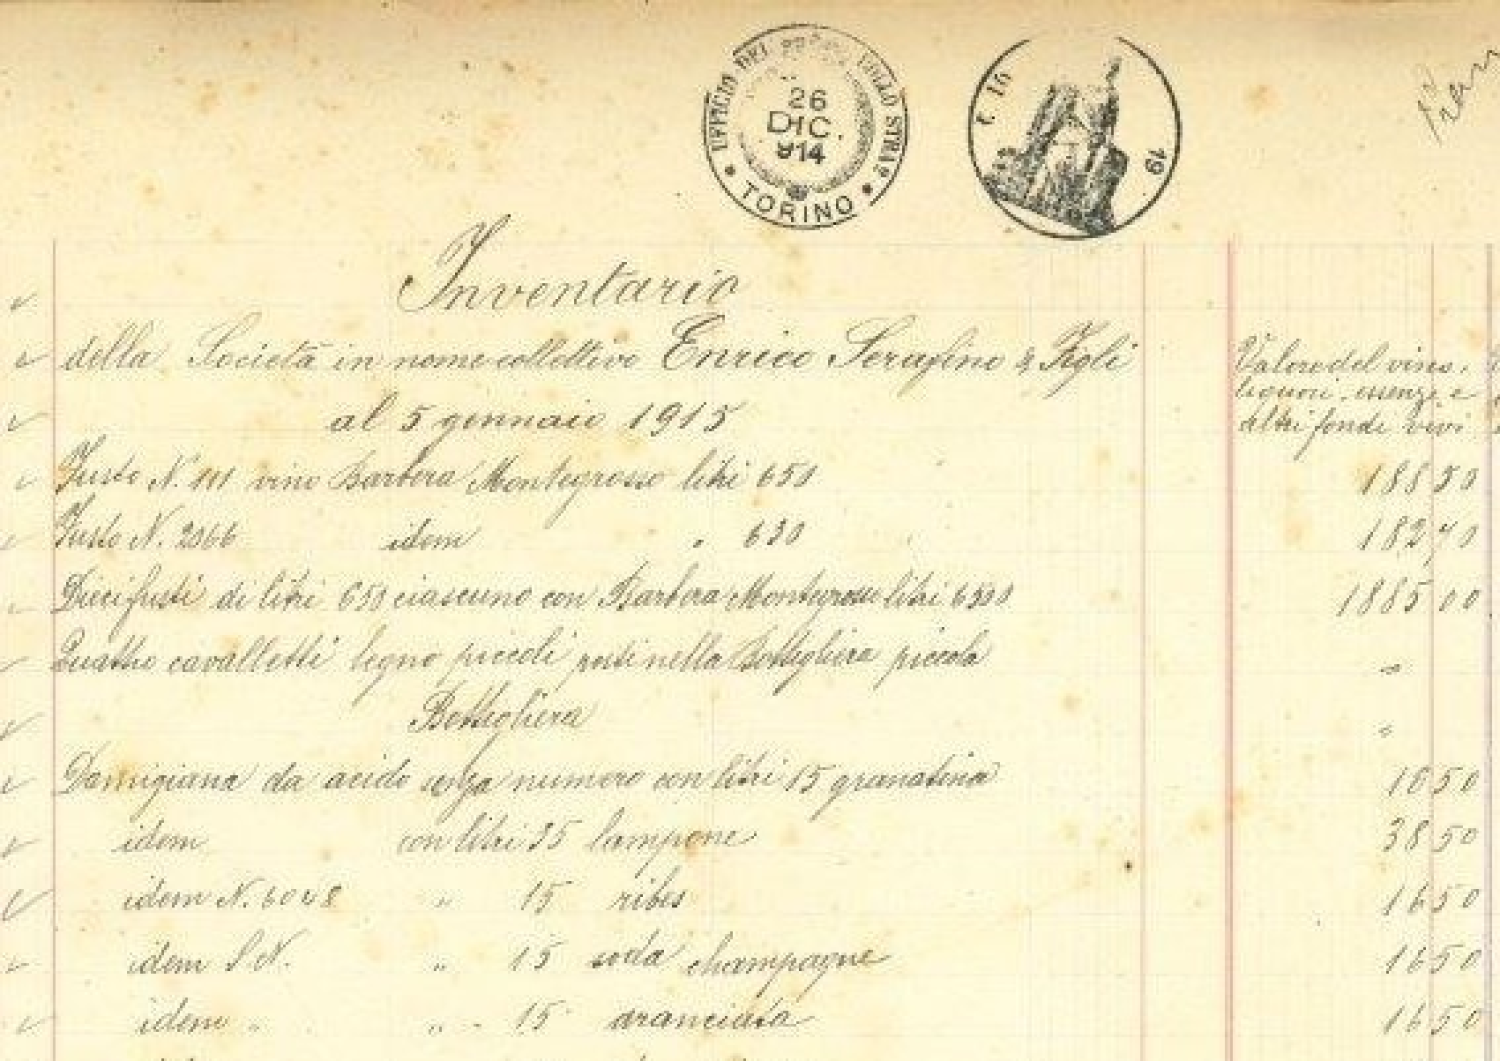 UFFICIO DEL BOLLO STRAº
26
DIC.
914
TORINO
19
Inventario
della Società in nome collettivo Enrico Serafino & Figli
al 5 gennaio 1915
Valore del vino,
liquori, essenze e
altri fondi vivi
Fusto N. 111 vino Barbera Montegrosso litri 650 188 50
Fusto N. 2066 idem " 630 182 70
Dieci fusti di litri 650 ciascuno con Barbera Montegrosso litri 6500 1885 00
Quattro cavalletti legno piccoli posti nella Bottigliera piccola "
Bottigliera "
Damigiana da acido senza numero con litri 15 granatina 16 50
idem con litri 35 lampone 38 50
idem N. 6048 " 15 ribes 16 50
idem S.N. " 15 soda champagne 16 50
idem " " 15 aranciata 16 50